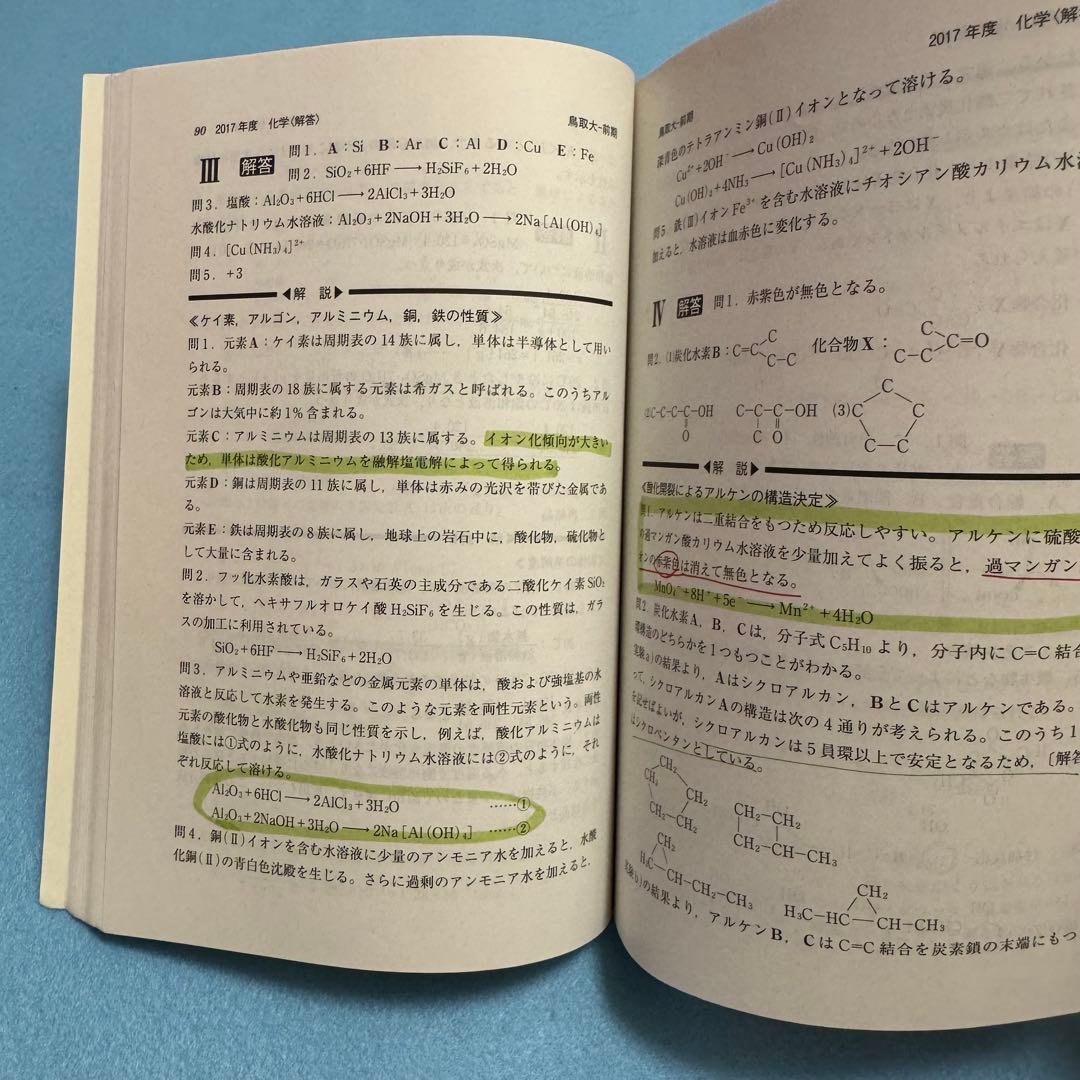 90 2017年度 化学〈解答〉 鳥取大-前期
III 解答 問1．A：Si B：Ar C：Al D：Cu E：Fe
問2．SiO₂+6HF→H₂SiF₆+2H₂O
問3．塩酸：Al₂O₃+6HCl→2AlCl₃+3H₂O
水酸化ナトリウム水溶液：Al₂O₃+2NaOH+3H₂O→2Na[Al(OH)₄]
問4．[Cu(NH₃)₄]²⁺
問5．+3
◀解 説▶
≪ケイ素，アルゴン，アルミニウム，銅，鉄の性質≫
問1．元素A：ケイ素は周期表の14族に属し，単体は半導体として用い
られる。
元素B：周期表の18族に属する元素は希ガスと呼ばれる。このうちアル
ゴンは大気中に約1％含まれる。
元素C：アルミニウムは周期表の13族に属する。イオン化傾向が大きい
ため，単体は酸化アルミニウムを融解塩電解によって得られる。
元素D：銅は周期表の11族に属し，単体は赤みの光沢を帯びた金属であ
る。
元素E：鉄は周期表の8族に属し，地球上の岩石中に，酸化物，硫化物と
して大量に含まれる。
問2．フッ化水素酸は，ガラスや石英の主成分である二酸化ケイ素SiO₂
を溶かして，ヘキサフルオロケイ酸H₂SiF₆を生じる。この性質は，ガラ
スの加工に利用されている。
SiO₂+6HF→H₂SiF₆+2H₂O
問3．アルミニウムや亜鉛などの金属元素の単体は，酸および強塩基の水
溶液と反応して水素を発生する。このような元素を両性元素という。両性
元素の酸化物と水酸化物も同じ性質を示し，例えば，酸化アルミニウムは
塩酸には①式のように，水酸化ナトリウム水溶液には②式のように，それ
ぞれ反応して溶ける。
Al₂O₃+6HCl→2AlCl₃+3H₂O ……①
Al₂O₃+2NaOH+3H₂O→2Na[Al(OH)₄] ……②
問4．銅(II)イオンを含む水溶液に少量のアンモニア水を加えると，水酸
化銅(II)の青白色沈殿を生じる。さらに過剰のアンモニア水を加えると，
2017年度 化学〈解
鳥取大-前期
深青色のテトラアンミン銅(II)イオンとなって溶ける。
Cu²⁺+2OH⁻→Cu(OH)₂
Cu(OH)₂+4NH₃→[Cu(NH₃)₄]²⁺+2OH⁻
問5．鉄(III)イオンFe³⁺を含む水溶液にチオシアン酸カリウム水
加えると，水溶液は血赤色に変化する。
IV 解答 問1．赤紫色が無色となる。
問2．(1)炭化水素B：C=C C C-C 化合物X：C C-C C=O
(2)C-C-C-C-OH O C-C-C-OH C O (3) C C C C-C
◀解 説▶
≪酸化開裂によるアルケンの構造決定≫
問1．アルケンは二重結合をもつため反応しやすい。アルケンに硫酸
の過マンガン酸カリウム水溶液を少量加えてよく振ると，過マンガン
オンの赤紫色は消えて無色となる。
MnO₄⁻+8H⁺+5e⁻→Mn²⁺+4H₂O
問2．炭化水素A，B，Cは，分子式C₅H₁₀より，分子内にC=C結合
環構造のどちらかを1つもつことがわかる。
実験a)の結果より，Aはシクロアルカン，BとCはアルケンである。
って，シクロアルカンAの構造は次の4通りが考えられる。このうち1
を記せばよいが，シクロアルカンは5員環以上で安定となるため，〔解答
はシクロペンタンとしている。
CH₂ CH₂ CH₂
CH₂-CH₂
CH₂-CH-CH₃
CH₂
H₂C-CH-CH₂-CH₃
CH₂
H₃C-HC-CH-CH₃
実験b)の結果より，アルケンB，CはC=C結合を炭素鎖の末端にもつ